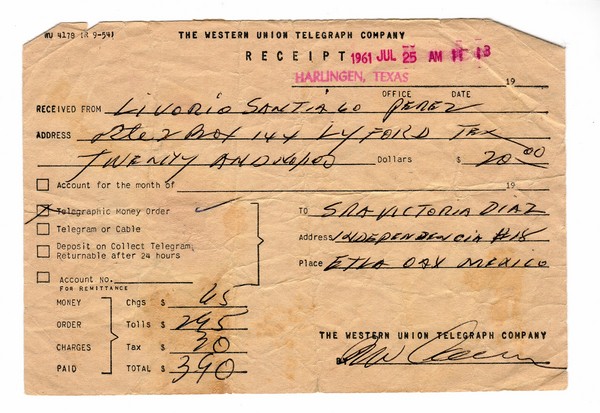 WU 4178 (R 9-54)
THE WESTERN UNION TELEGRAPH COMPANY
RECEIPT 1961 JUL 25 AM 11 13
HARLINGEN, TEXAS 19
OFFICE DATE
RECEIVED FROM LIVORIO SANTIAGO PEREZ
ADDRESS Rte 2 Box 144 LYFORD TEX
TWENTY AND NO/100 Dollars $ 20.00
Account for the month of 19
Telegraphic Money Order
Telegram or Cable
Deposit on Collect Telegram
Returnable after 24 hours
Account No.
FOR REMITTANCE
TO SRA VICTORIA DIAZ
Address INDEPENDENCIA #18
Place ETLA OAX MEXICO
MONEY Chgs $ 65
ORDER Tolls $ 295
CHARGES Tax $ 30
PAID TOTAL $ 390
THE WESTERN UNION TELEGRAPH COMPANY
BY